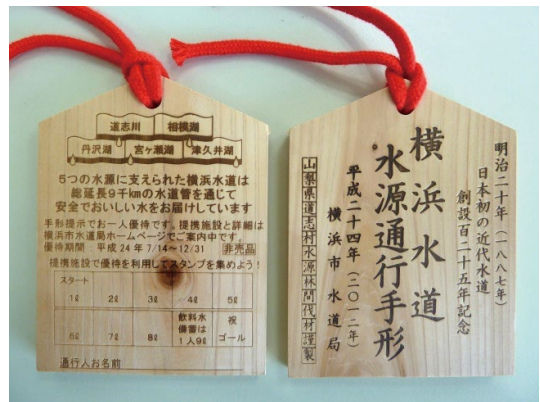 道志川 相模湖
丹沢湖 宮ヶ瀬湖 津久井湖
5つの水源に支えられた横浜水道は
総延長9千kmの水道管を通じて
安全でおいしい水をお届けしています
手形提示でお一人優待です。提携施設と詳細は
横浜市水道局ホームページでご案内中です。
優待期間 平成24年7/14～12/31 非売品
提携施設で優待を利用してスタンプを集めよう!
スタート
1ℓ 2ℓ 3ℓ 4ℓ 5ℓ
6ℓ 7ℓ 8ℓ 飲料水備蓄は1人9ℓ 祝ゴール
通行人お名前
明治二十年（一八八七年）
日本初の近代水道
創設百二十五年記念
横浜水道
水源通行手形
平成二十四年（二〇一二年）
横浜市 水道局
山梨県道志村水源林間伐材謹製